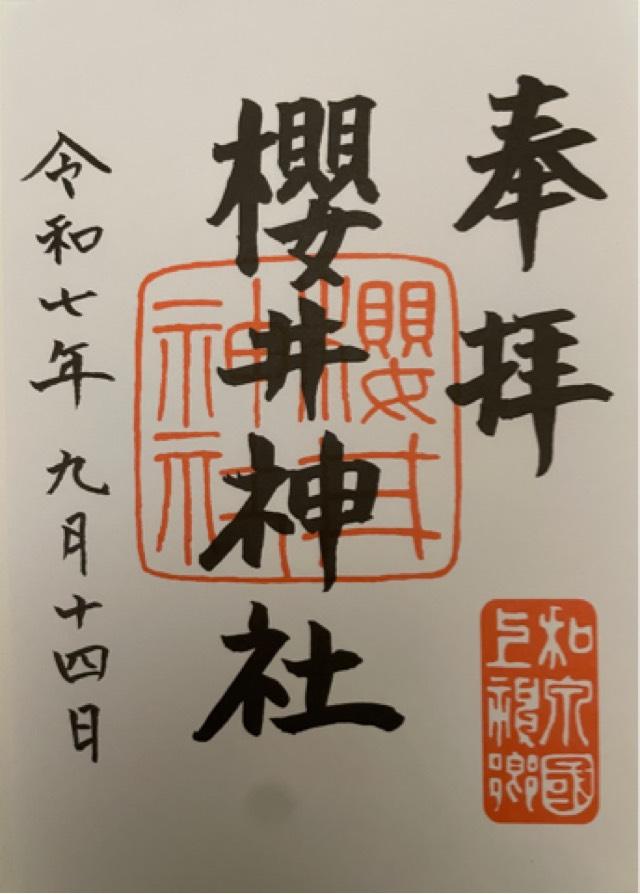 奉拝
和泉國
上神郷
櫻井神社
櫻井
神社
令和七年九月十四日